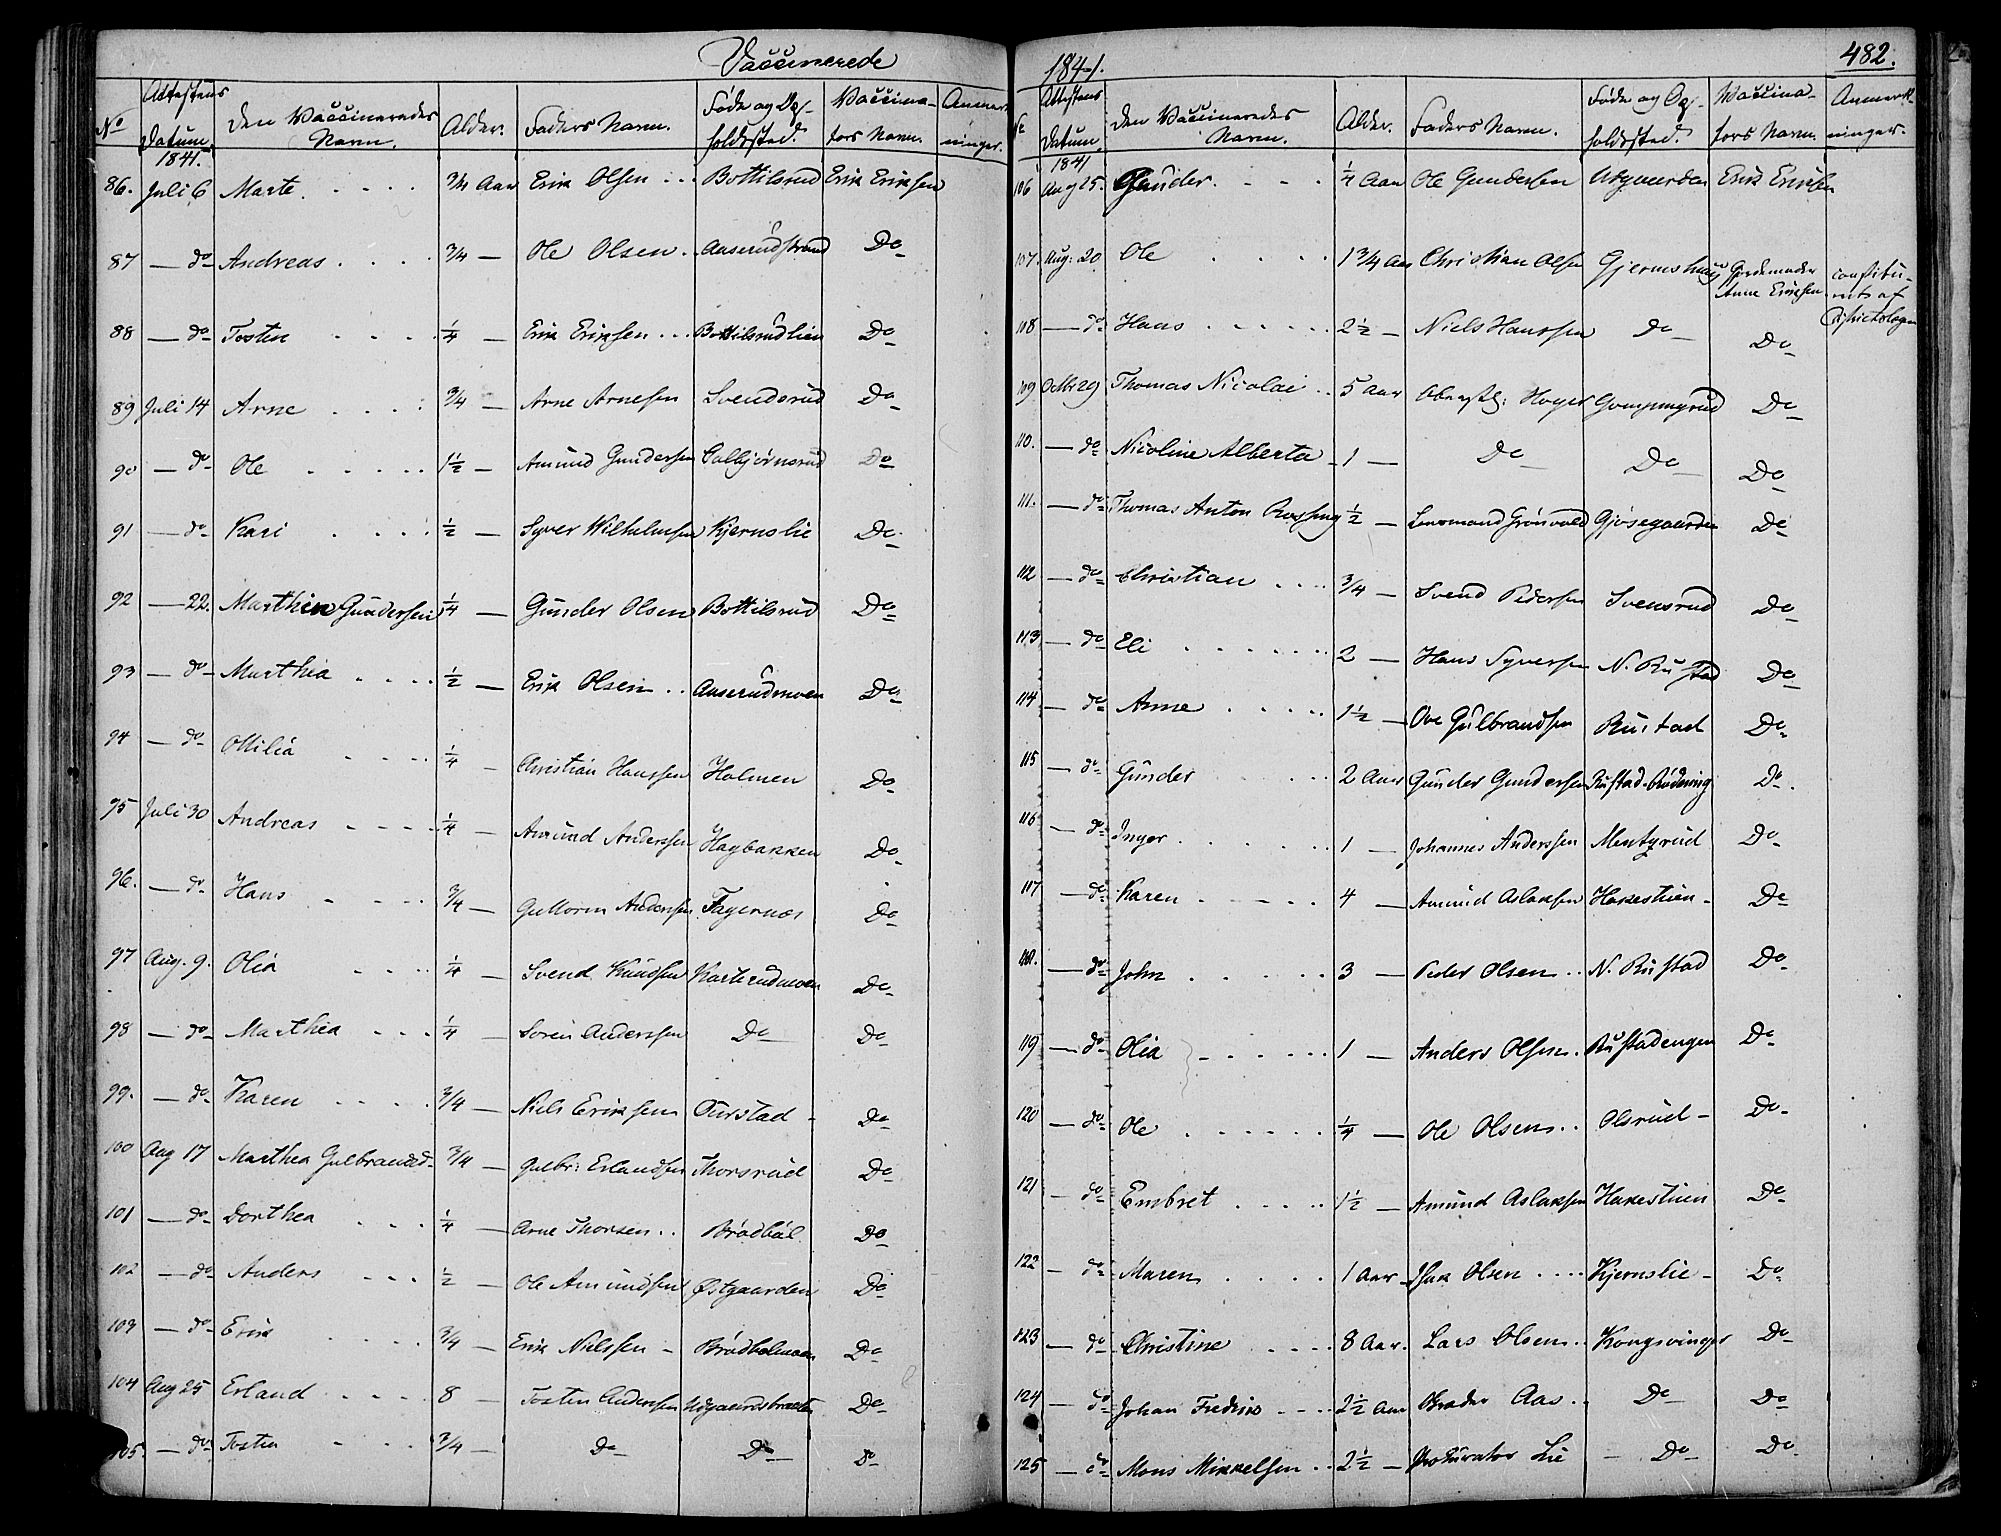 Vaccinerede
No
Attestens Datum
Den Vaccineredes Navn.
Alder.
Faders Navn.
Føde og Op- holdssted.
Vaccina- tors Navn.
Anmærk- ninger.
1841.
86. Juli 6 Marte Erik Olsen Bottilsrud Erik Eriksen
87 — do Andreas 3/4 — Ole Olsen Aaserudstrand Do
88 — do Tosten 1/4 — Erik Eriksen Bottilsrudlien Do
89 Juli 14 Arne 3/4 — Arne Arnesen Svenderud Do
90 — do Ole 1 1/2 — Amund Gundersen Colbjørnsrud Do
91 — do Kari 1/2 — Syver Wilhelmsen Kjernslie Do
92 — 22. Marthin Gundersen 1/4 — Gunder Olsen Bottilsrud Do
93 — do Marthia 1/2 — Erik Olsen Aaserudmoen Do
94 — do Ottilia 1/4 — Christian Hanssen Holmen Do
95 Juli 30 Andreas 1/4 — Amund Anderssen Haybakken Do
96. — do Hans 3/4 — Guttorm Anderssen Fagernæs Do
97 Aug. 9. Olia 1/4 — Svend Knudsen Karterudmoen Do
98 — do Marthea 1/4 — Søren Anderssen Do Do
99. — do Karen 3/4 — Niels Eriksen Overstad Do
100 Aug 17 Marthea Gulbrandsd. 3/4 — Gulbr: Erlandsen Thorsrud Do
101 — do Dorthea 1/4 — Arne Thorsen Brødbøl Do
102 — do Anders 1/2 — Ole Amundsen Østgaarden Do
103 — do Erik 3/4 — Erik Nielssen Brødbølmoen Do
104 Aug 25 Erland 8 — Tosten Andersen Udgaardsbraaten Do
105. — do Tosten 3/4 — Do Do Do
1841.
482.
Attestens Datum
Den Vaccineredes Navn.
Alder.
Faders Navn.
Føde og Op- holdssted.
Vaccina- tors Navn.
Anmærk- ninger.
1841
106 Aug 25. Gunder 1/4 Aar Ole Gundersen Utgaarden Erik Eriksen
107. Aug: 20. Ole 1 3/4 Aar Christian Olsen Gjermshuus Gjordemoder Anne Eriksen constitu- ret af Districtslægen
108 — do Hans 2 1/2 — Niels Hanssen do Do
109 Octbr 29 Thomas Nicolai 5 Aar Oberstl: Hoyer Do
110. — do Nicoline Alberta 1 — Do Do Do
111. — do Thomas Anton Rossing 1/2 — Lensmand Grønvold Gjøsegaarden Do
112 — do Christian 3/4 — Svend Pedersen Svensrud Do
113 — do Eli 2 — Hans Syversen N. Rustad Do
114 — do Anne 1 1/2 — Ove Gulbrandsen Rustad Do
115 — do Gunder 2 Aar Gunder Gundersen Rustad-Rødning Do
116 — do Inger 1 — Johannes Anderssen Mentzrud Do
117 — do Karen 4 — Amund Aslaksen Hakestuen Do
118. — do John 3 — Peder Olsen N. Rustad Do
119 — do Olia 1 — Anders Olsen Rustadengen Do
120 — do Ole 1/4 — Ole Olsen Olsrud Do
121 — do Embret 1 1/2 — Amund Aslaksen Hakestuen Do
122 — do Maren 1 Aar Isak Olsen Kjernslie Do
123 — do Christine 8 Aar. Lars Olsen Kongsvinger Do
124 — do Johan Fredrik 2 1/2 Aar Aas Do Do
125 — do Mons Mikkelsen 2 1/2 — Prokurator Lie Do Do